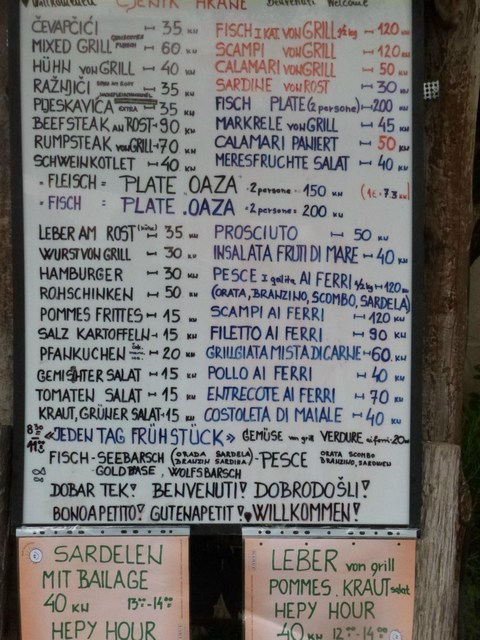 CJENIK HRANE
Benvenuti Welcome
ČEVAPČIĆI 35 KN
MIXED GRILL 60 KN
HÜHN von GRILL 40 KN
RAŽNJIČI 35 KN
PLJESKAVIČA EXTRA 35 KN
BEEFSTEAK AN ROST 90 KN
RUMPSTEAK von GRILL 70 KN
SCHWEINKOTLET 40 KN
FISCH I KAT. VON GRILL ½ kg 120 KN
SCAMPI von GRILL 120 KN
CALAMARI von GRILL 50 KN
SARDINE von ROST 30 KN
FISCH PLATE (2 persone) 200 KN
MARKRELE von GRILL 45 KN
CALAMARI PANIERT 50 KN
MERESFRUCHTE SALAT 40 KN
• FLEISCH = PLATE .OAZA • 2 persone = 150 KN (1€ = 7.3 KN)
• FISCH = PLATE .OAZA • 2 persone = 200 KN
LEBER AM ROST 35 KN
WURST von GRILL 30 KN
HAMBURGER 30 KN
ROHSCHINKEN 50 KN
POMMES FRITTES 15 KN
SALZ KARTOFFELN 15 KN
PFANKUCHEN 20 KN
GEMISHTER SALAT 15 KN
TOMATEN SALAT 15 KN
KRAUT, GRÜNER SALAT 15 KN
PROSCIUTO 50 KN
INSALATA FRUTI DI MARE 40 KN
PESCE I qalita AI FERRI ½ kg 120 KN
(ORATA, BRANZINO, SCOMBO, SARDELA)
SCAMPI AI FERRI 120 KN
FILETTO AI FERRI 90 KN
GRILLGIATA MISTA DI CARNE 60 KN
POLLO AI FERRI 40 KN
ENTRECOTE AI FERRI 70 KN
COSTOLETA DI MAIALE 40 KN
«JEDEN TAG FRÜHSTÜCK» GEMÜSE von grill VERDURE ai ferri - 20 KN
FISCH-SEEBARSCH (ORADA SARDELA) - PESCE ORATA SCOMBO
(BRANZIN SARDINA) BRANZINO, SARDINEN
GOLDBASE, WOLFSBARSCH
DOBAR TEK! BENVENUTI! DOBRODOŠLI!
BONOAPETITO! GUTENAPETIT! WILLKOMMEN!
SARDELEN
MIT BAILAGE
40 KN 13°° - 14°°
HEPY HOUR
LEBER von grill
POMMES. KRAUT salat
HEPY HOUR
40 KN 12°° - 14°°